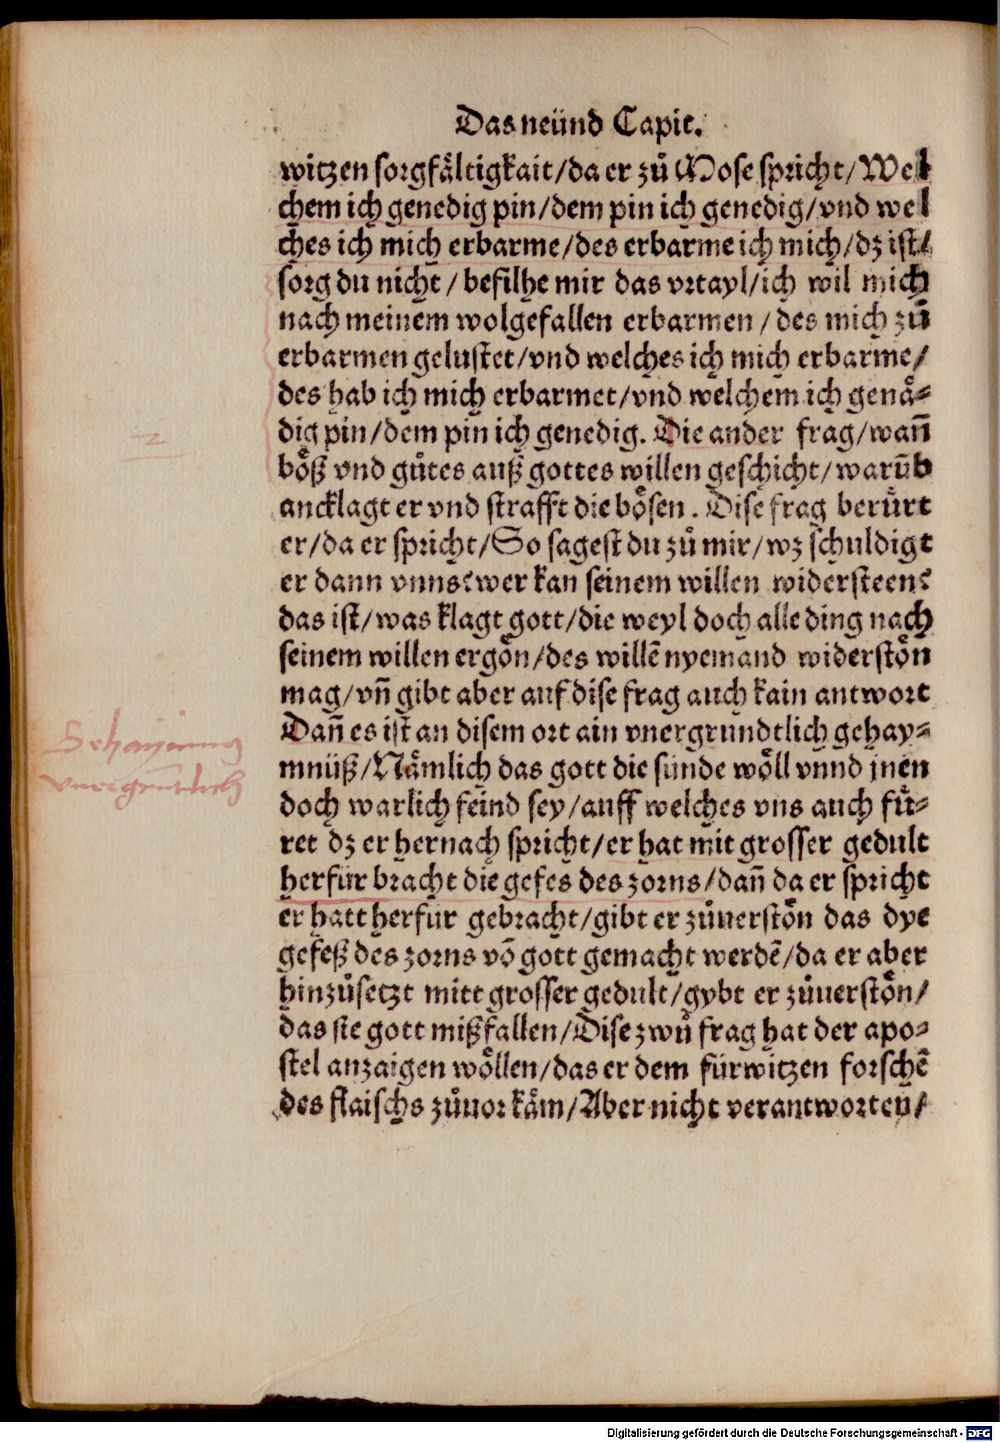 Das neünd Capit.
witzen sorgfåltigkait/da er zů Mose spricht/Wel
chem ich genedig pin/dem pin ich genedig/vnd wel
ches ich mich erbarme/des erbarme ich mich/dz ist/
sorg du nicht/befilhe mir das vrtayl/ich wil mich
nach meinem wolgefallen erbarmen/des mich zů
erbarmen gelustet/vnd welches ich mich erbarme/
des hab ich mich erbarmet/vnd welchem ich genå-
dig pin/dem pin ich genedig. Die ander frag/wañ
böß vnd gůtes auß gottes willen geschicht/warūb
ancklagt er vnd strafft die bösen. Dise frag berürt
er/da er spricht/So sagest du zů mir/wz schuldigt
er dann vnns? wer kan seinem willen widersteen?
das ist/was klagt gott/die weyl doch alle ding nach
seinem willen ergön/des willē nyemand widerstön
mag/vñ gibt aber auf dise frag auch kain antwort
Dañ es ist an disem ort ain vnergrundtlich gehay-
mnüß/Nåmlich das gott die sünde wöll vnnd jnen
doch warlich feind sey/auff welches vns auch fü-
ret dz er hernach spricht/er hat mit grosser gedult
herfür bracht die gefes des zorns/dañ da er spricht
er hatt herfür gebracht/gibt er zůuerstön das dye
gefeß des zorns vō gott gemacht werdē/da er aber
hinzůsetzt mitt grosser gedult/gybt er zůuerstön/
das sie gott mißfallen/Dise zwů frag hat der apo-
stel anzaigen wöllen/das er dem fürwitzen forschē
des flaischs zůuor kåm/Aber nicht verantworten/
2
Gehaymnus
vnergruntlich
Digitalisierung gefördert durch die Deutsche Forschungsgemeinschaft - DFG